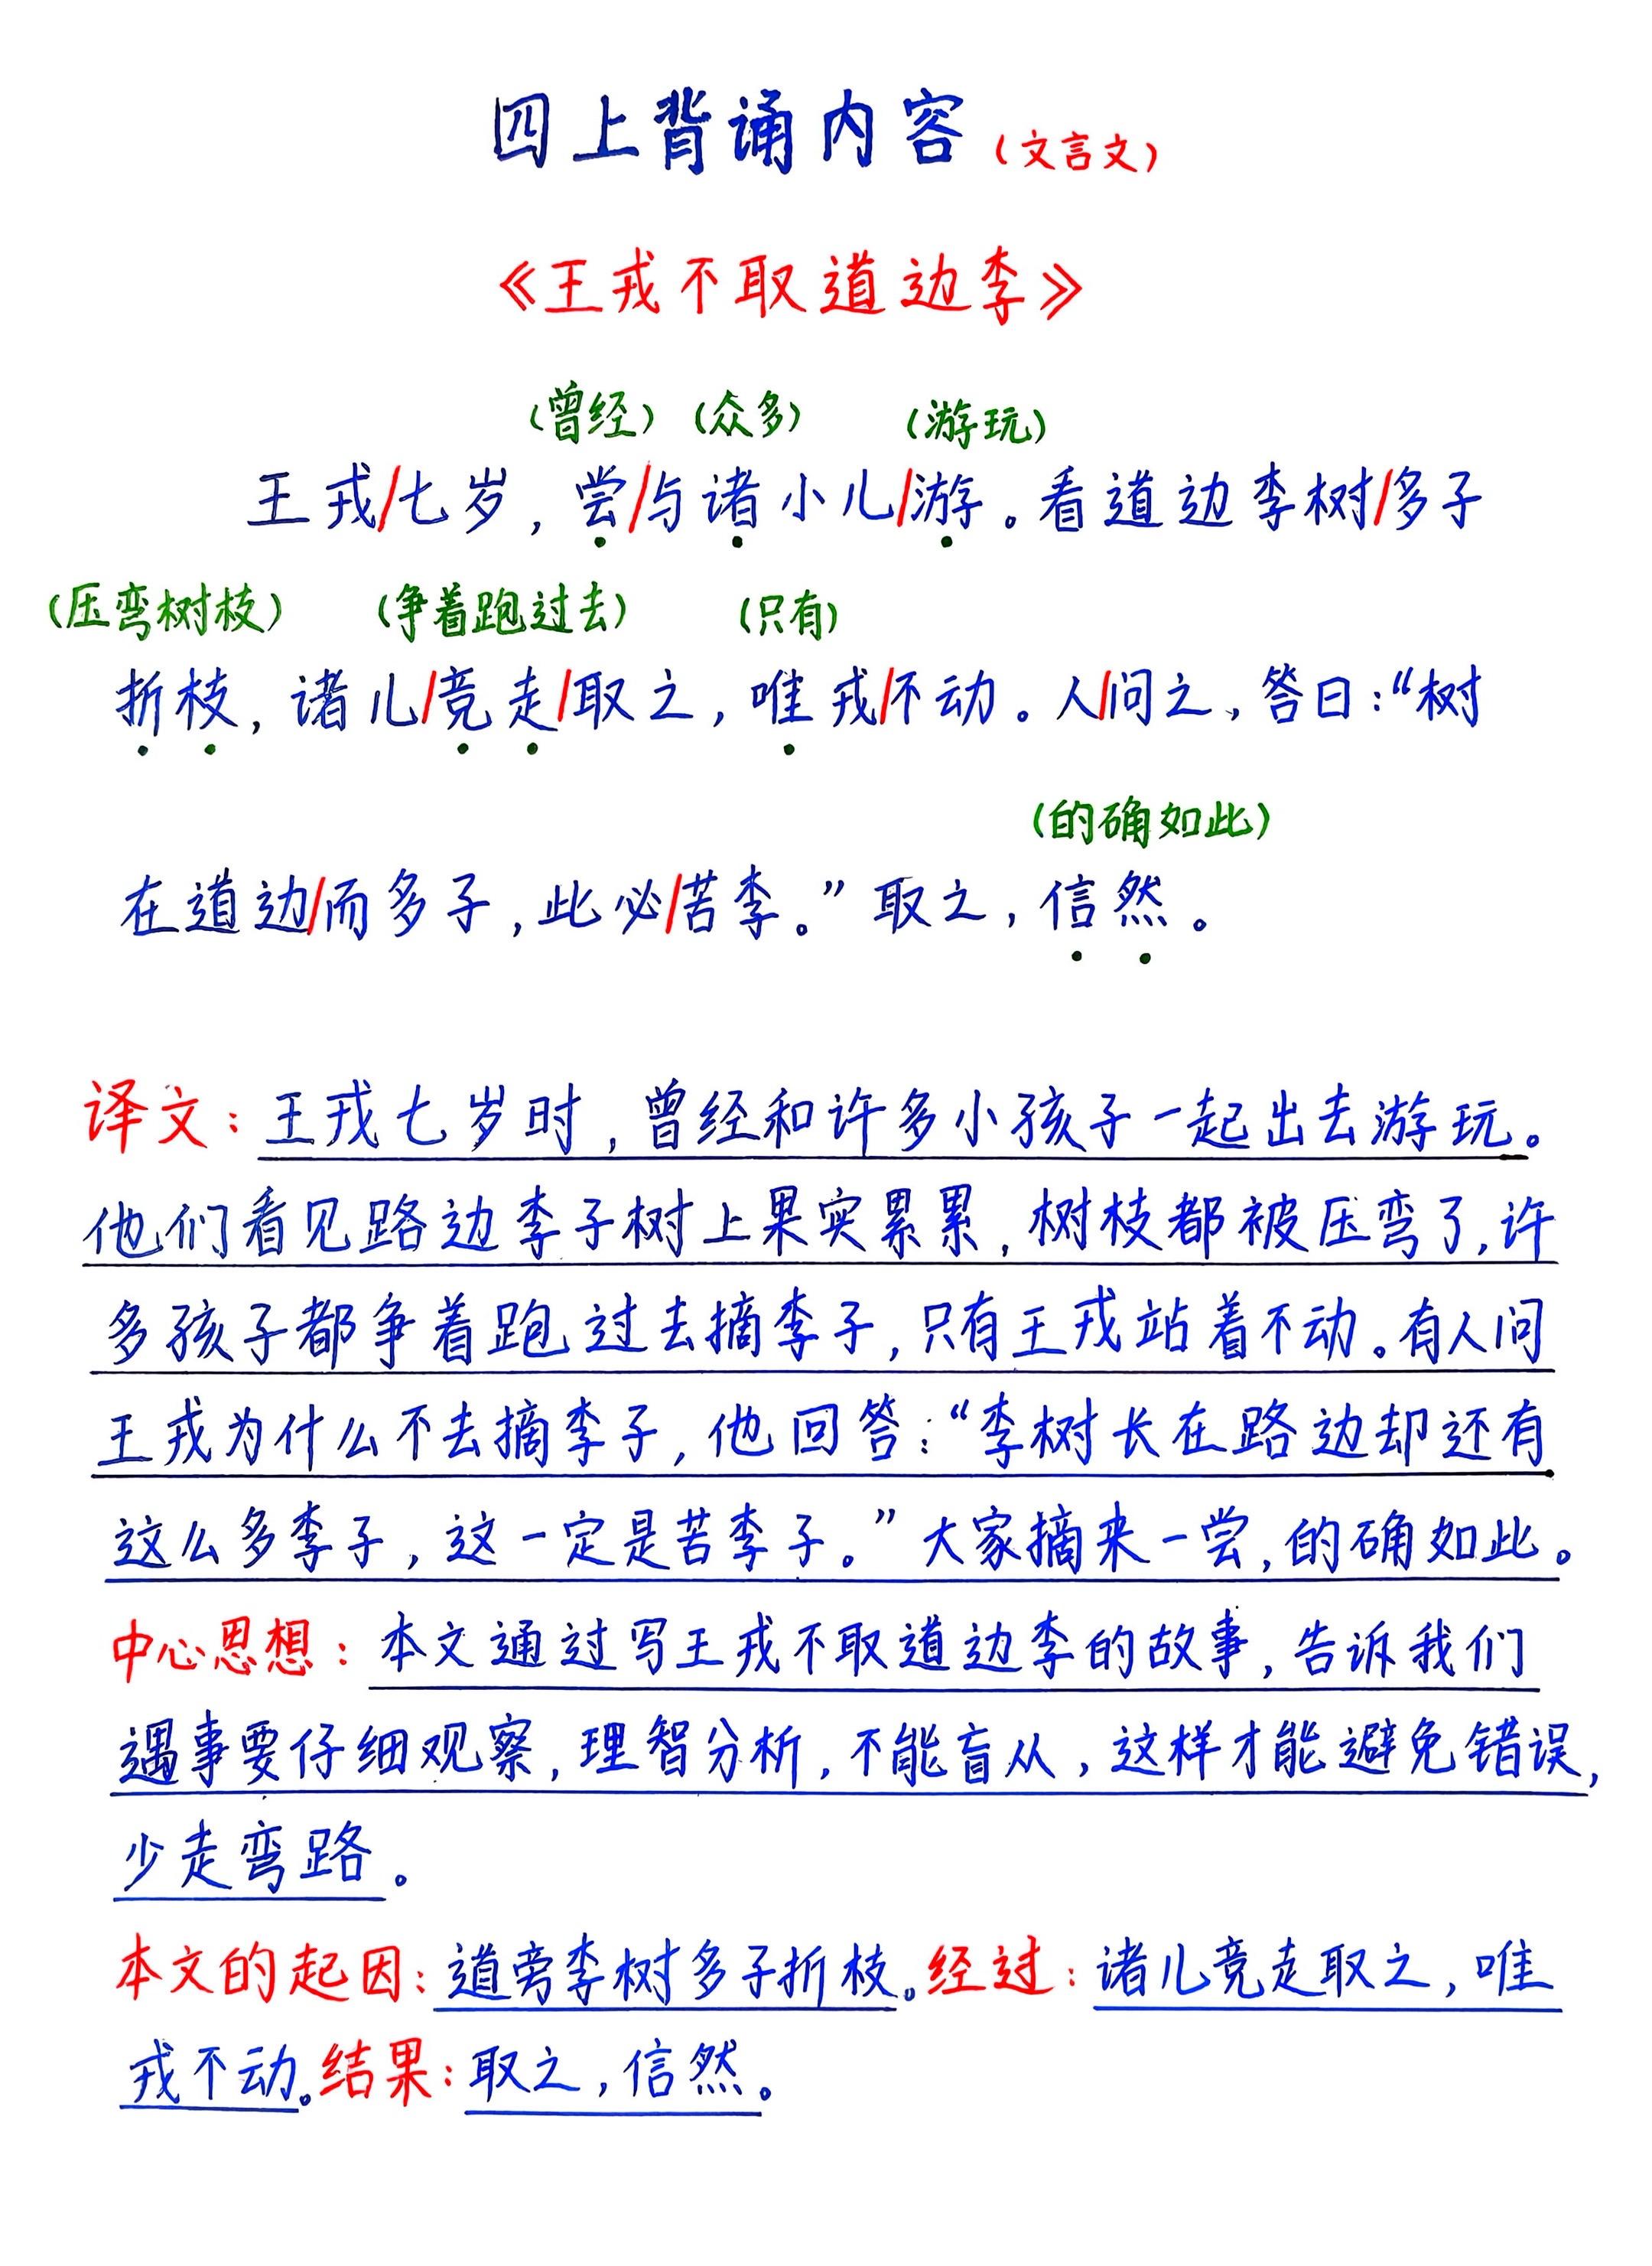 四上背诵内容（文言文）
《王戎不取道边李》
（曾经）（众多）（游玩）
王戎/七岁，尝/与诸小儿/游。看道边李树/多子
（压弯树枝）（争着跑过去）（只有）
折枝，诸儿/竞走/取之，唯戎/不动。人/问之，答曰：“树
（的确如此）
在道边/而多子，此必/苦李。”取之，信然。
译文：王戎七岁时，曾经和许多小孩子一起出去游玩。
他们看见路边李子树上果实累累，树枝都被压弯了，许
多孩子都争着跑过去摘李子，只有王戎站着不动。有人问
王戎为什么不去摘李子，他回答：“李树长在路边却还有
这么多李子，这一定是苦李子。”大家摘来一尝，的确如此。
中心思想：本文通过写王戎不取道边李的故事，告诉我们
遇事要仔细观察，理智分析，不能盲从，这样才能避免错误，
少走弯路。
本文的起因：道旁李树多子折枝。经过：诸儿竞走取之，唯
戎不动。结果：取之，信然。